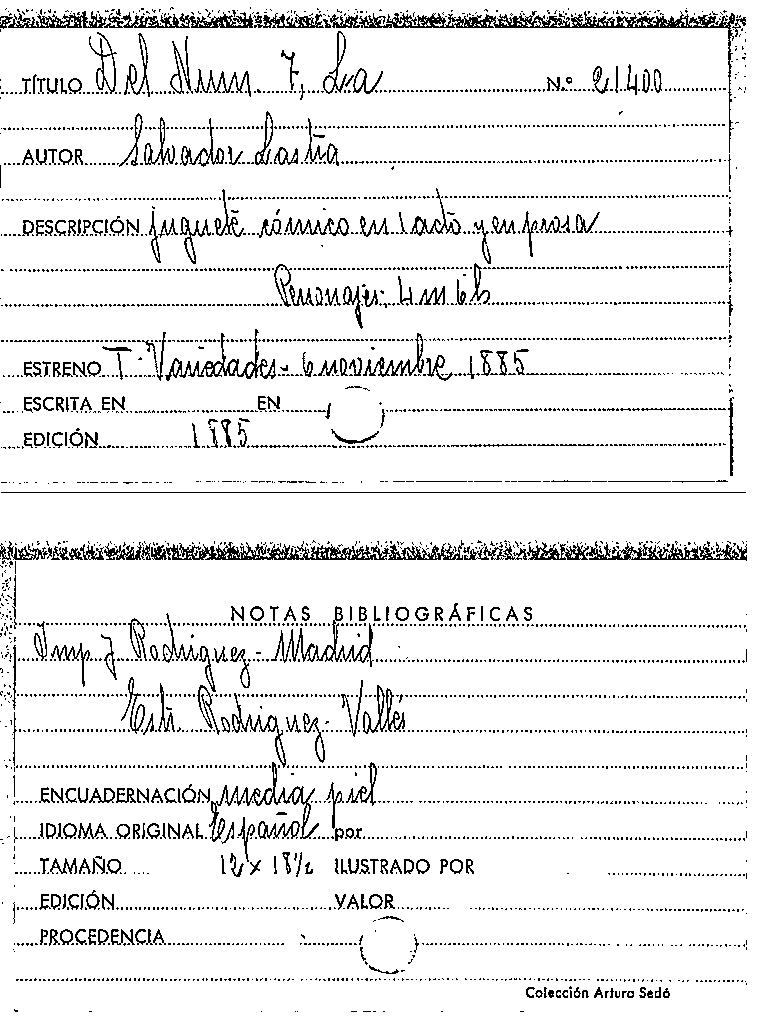 TÍTULO Del Num. 7, La N.º 21400
AUTOR Salvador Lastra
DESCRIPCIÓN juguete cómico en 1 acto y en prosa
Personajes: 4 m 6 h
ESTRENO T. Variedades - 6 noviembre 1885
ESCRITA EN EN
EDICIÓN 1885
NOTAS BIBLIOGRÁFICAS
Imp. J. Rodriguez - Madrid
Estr. Rodriguez - Vallés
ENCUADERNACIÓN media piel
IDIOMA ORIGINAL Español por
TAMAÑO 12 x 18½ ILUSTRADO POR
EDICIÓN VALOR
PROCEDENCIA
Colección Arturo Sedó